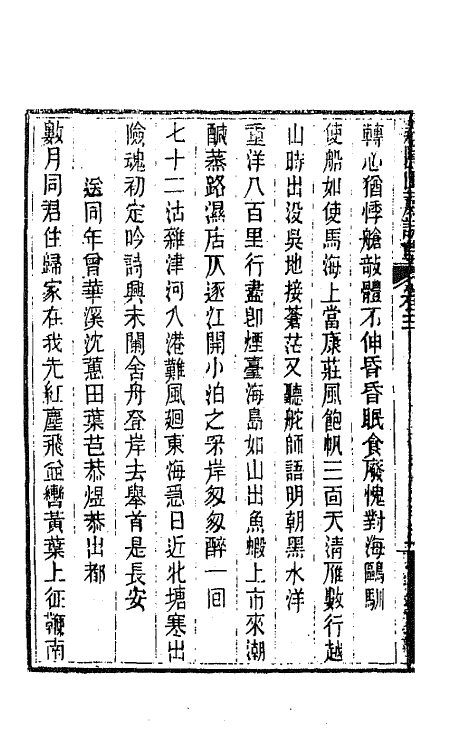 轉心猶悸艙敧體不伸昏昏眠食廢愧對海鷗馴
使船如使馬海上當康莊風飽帆三面天淸雁數行越
山時出沒吳地接蒼茫又聽舵師語明朝黑水洋
重洋八百里行盡卽煙臺海島如山出魚蝦上市來潮
鹹蒸路濕居仄逐江開小泊之罘岸匆匆醉一回
七十二沽雜津河八港難風廻東海急日近北塘寒出
險魂初定吟詩興未闌舍舟登岸去舉首是長安
送同年曾華溪沈蕙田葉芑恭煜恭出都
數月同君住歸家在我先紅塵飛並轡黃葉上征鞭南